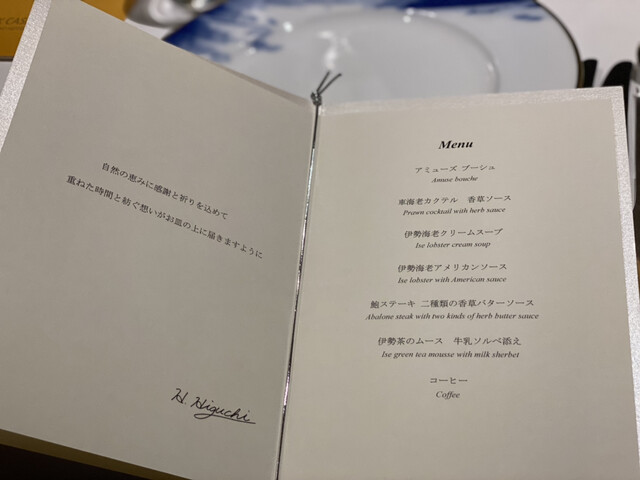 自然の恵みに感謝と祈りを込めて
重ねた時間と紡ぐ想いがお皿の上に届きますように
H. Higuchi
Menu
アミューズ ブーシュ
Amuse bouche
車海老カクテル 香草ソース
Prawn cocktail with herb sauce
伊勢海老クリームスープ
Ise lobster cream soup
伊勢海老アメリカンソース
Ise lobster with American sauce
鮑ステーキ 二種類の香草バターソース
Abalone steak with two kinds of herb butter sauce
伊勢茶のムース 牛乳ソルベ添え
Ise green tea mousse with milk sherbet
コーヒー
Coffee